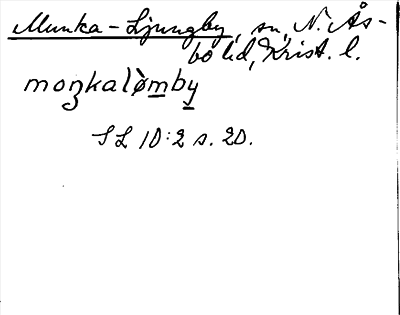 Munka-Ljungby, sn, N. Ås-
bo hd, Krist. l.
moŋkalòmby
SL 10:2 s. 20.